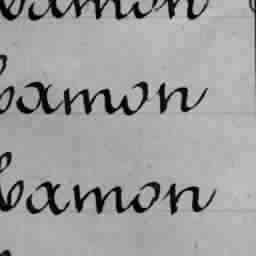 bamon
bamon
bamon